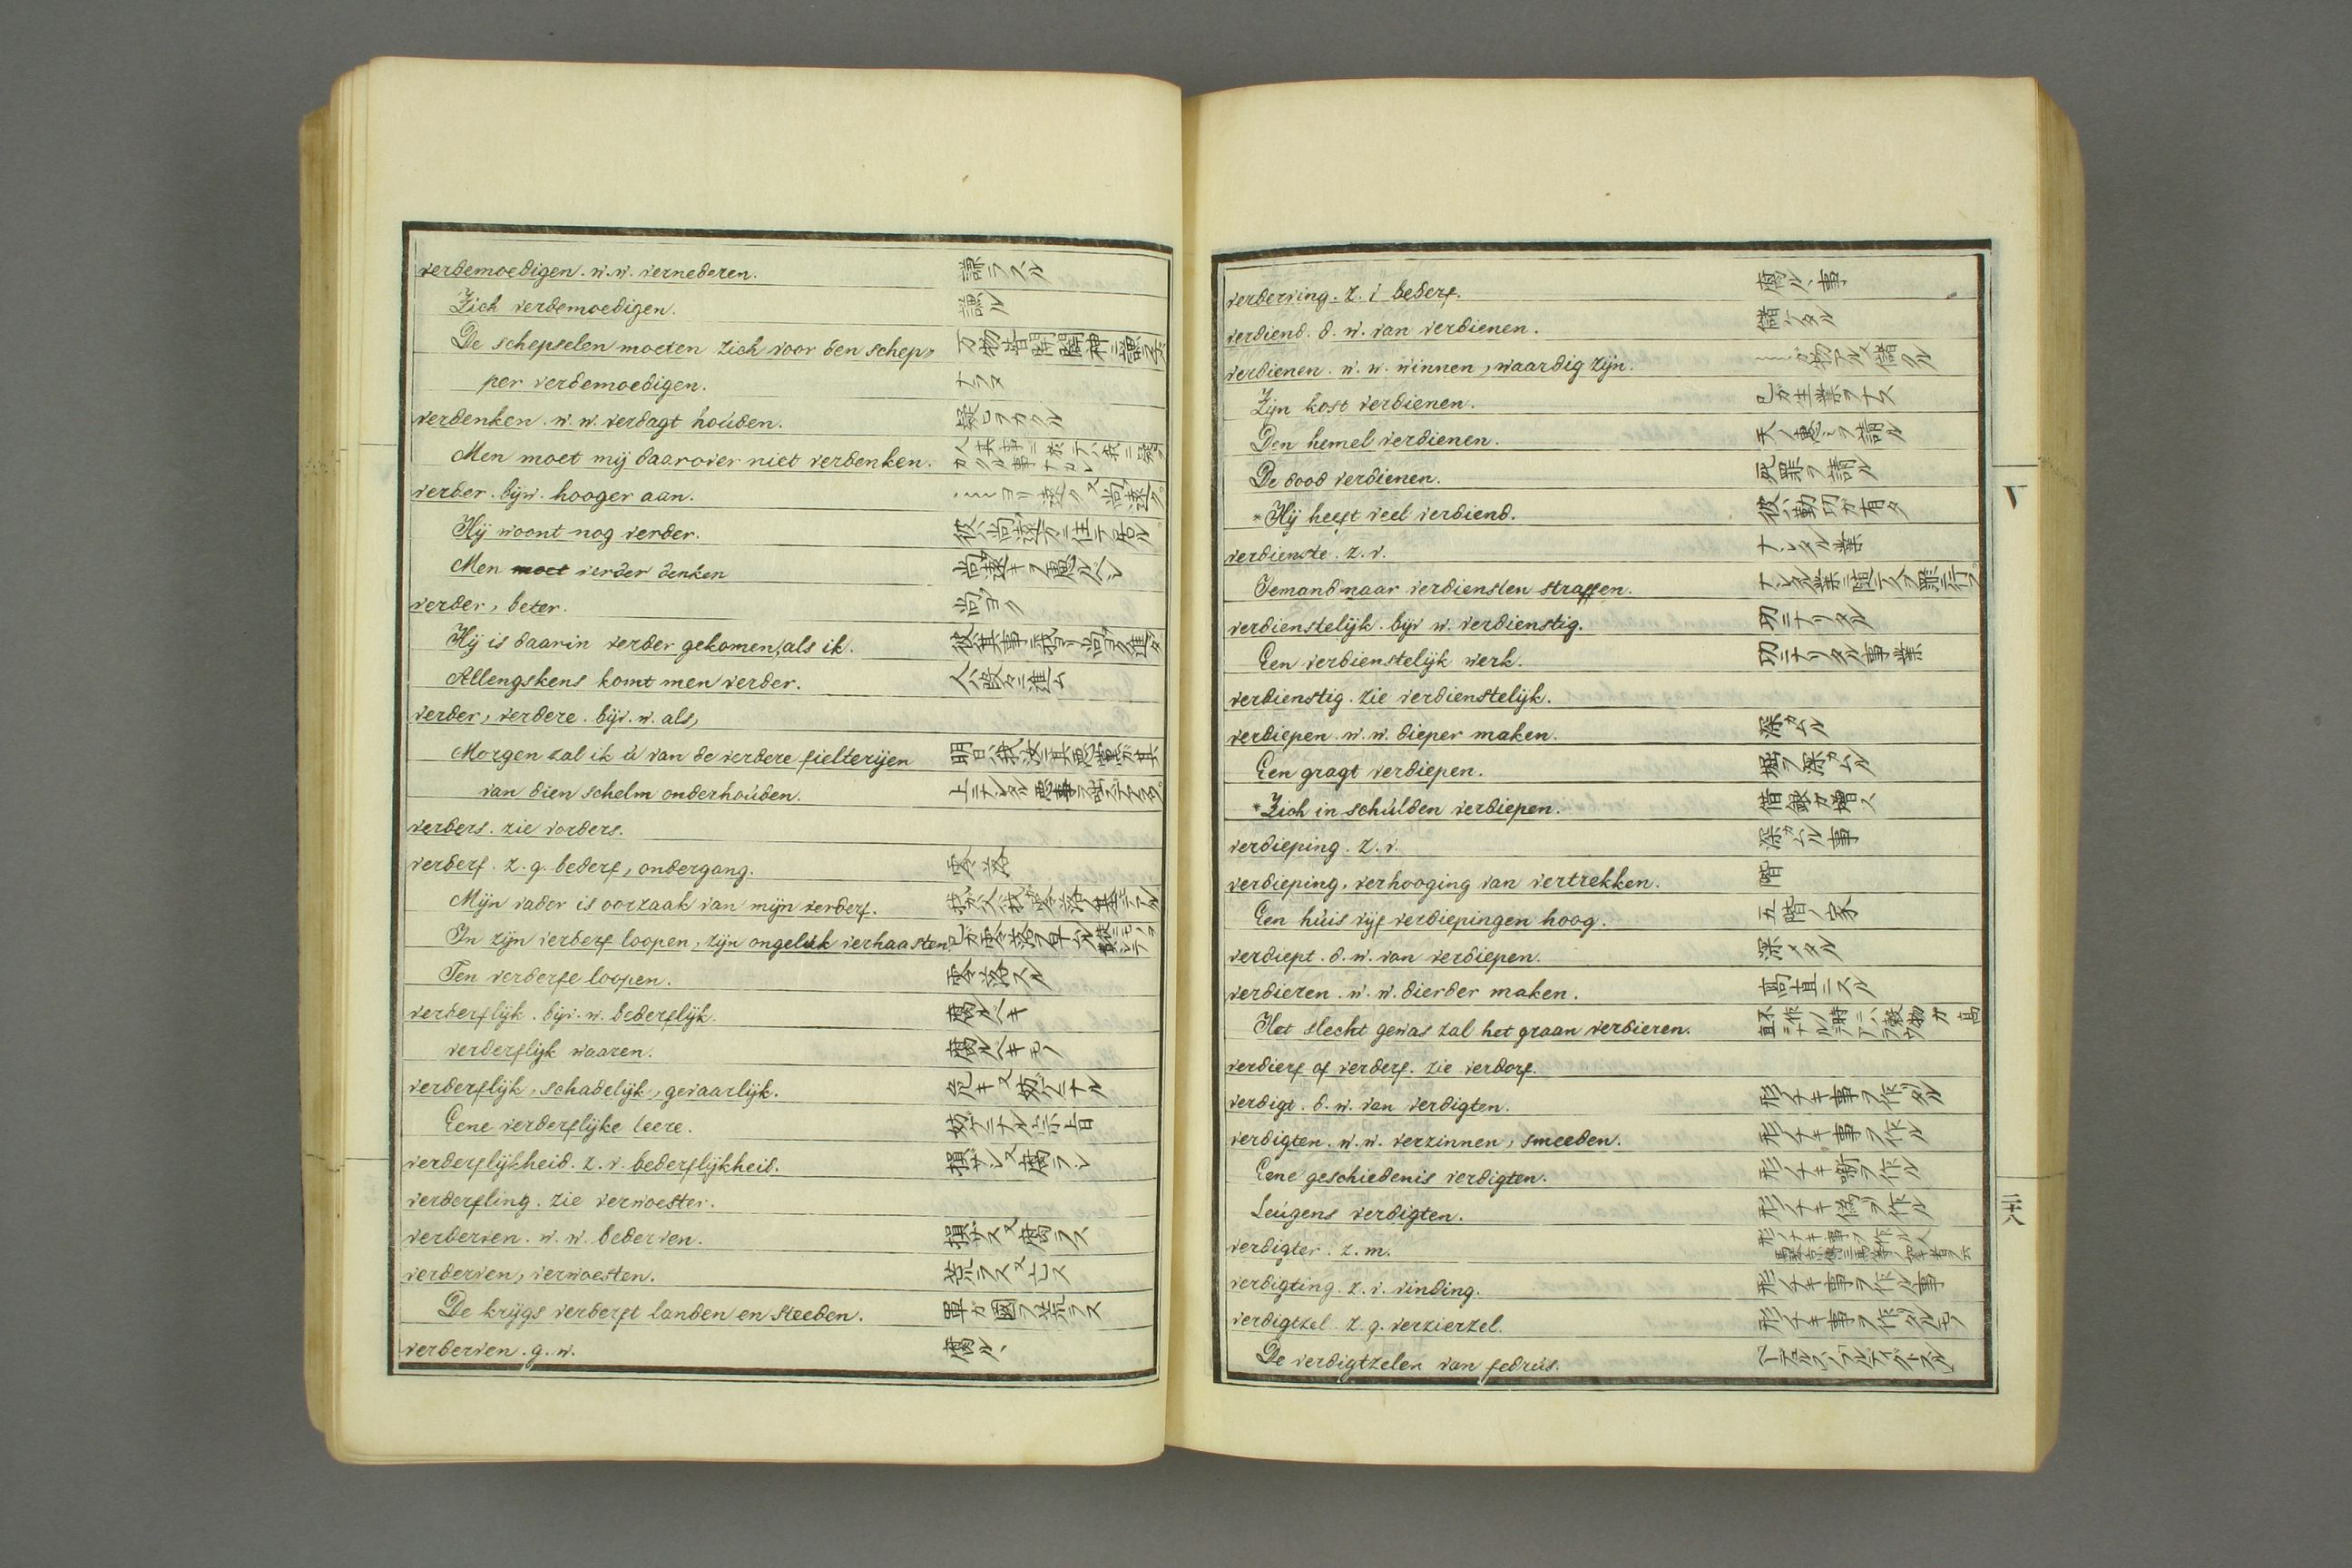 verdemoedigen. w.w. vernederen. 謙ラスル
Zich verdemoedigen. 謙ル
De schepselen moeten zich voor den schep= 万物皆開闢神ニ謙ラズ
per verdemoedigen. ナラヌ
verdenken. w.w. verdagt houden. 疑ヒヲカクル
Men moet mij daarover niet verdenken. 人其事ニ於テハ我ニ疑ヲカクル事ナルレ
verder. bijw. hooger aan.
Hij woont nog verder. 彼ハ尚遠方ニ住テ居ル
Men moet verder denken 尚遠キヲ慮ルベシ
verder, beter. 尚ヨク
Hij is daarin verder gekomen, als ik. 彼其事ニ我ヨリ尚ヨク進タ
Allengskens komt men verder. 人ハ段々ニ進ム
verder, verdere. bijv. w. als,
Morgen zal ik ú van de verdere fielterijen 明日ハ我汝ニ其悪黨ガ其
van dien schelm onderhoúden.
verders. zie vorders.
verderf. z.g. bederf, ondergang. 零落
Mijn vader is oorzaak van mijn verderf. 我父ハ我ガ零落ノ基デアル
In zijn verderf loopen, zijn ongeluk verhaasten 己ガ零落ヲ早ムル
Ten verderfe loopen. 零落スル
verderflijk. bijv. w. bederflijk. 腐ルベキ
verderflijk waaren. 腐ルベキモノ
verderflijk, schadelijk, gevaarlijk. 危キ又妨ゲニナル
Eene verderflijke leere. 妨ゲニナル宗旨
verderflijkheid. z.v. bederflijkheid. 損ザシ又腐ラシ
verderfling. zie verwoester.
verderven. w.w. bederven. 損ザス又腐ラス
verderven, verwoesten. 荒ラス又亡ス
De krijgs verderft landen en steeden. 軍ガ國ヲ荒ラス
verderven. g.w. 腐ル
verderving. z. i bederf. 腐ル事
verdiend. d.w. van verdienen. 儲ケタル
verdienen. w.w. winnen, waardig zijn.
Zijn kost verdienen. 己ガ生業ヲナス
Den hemel verdienen. 天ノ恵ミヲ請ル
De dood verdienen. 死罪ヲ請ル
*Hij heeft veel verdiend. 彼ハ勤功ガ有タ
verdienste. z.v. ナシタル業
Iemand naar verdiensten straffen. ナシタル業ニ随テ人ヲ罪ニ行フ
verdienstelijk. bijv w. verdienstig. 功ニナリタル
Een verdienstelijk werk. 功ニナリタル事業
verdienstig. zie verdienstelijk.
verdiepen. w.w. dieper maken. 深カムル
Een gragt verdiepen. 堀ヲ深カムル
*Zich in schúlden verdiepen. 借銀ガ増ス
verdieping. z.v. 深カムル事
verdieping, verhooging van vertrekken. 階
Een húis vijf verdiepingen hoog. 五階ノ家
verdiept. d.w. van verdiepen. 深メタル
verdieren. w.w. dierder maken. 高直ニスル
Het slecht gewas zal het graan verdieren. 不作ノ時ニハ穀物ガ高直ニナルデアラウ
verdierf of verderf. zie verdorf.
verdigt. d.w. van verdigten. 形ナキ事ヲ作タル
verdigten. w.w. verzinnen, smeeden. 形ナキ事ヲ作ル
Eene geschiedenis verdigten. 形ナキ噺ヲ作ル
Leúgens verdigten. 形ナキ偽ヲ作ル
verdigter. z.m. 形ナキ事ヲ作ル人
verdigting. z.v. vinding. 形ナキ事ヲ作ル事
verdigtzel. z.g. verzierzel. 形ナキ事ヲ作タルモノ
De verdigtzelen van fedrús.